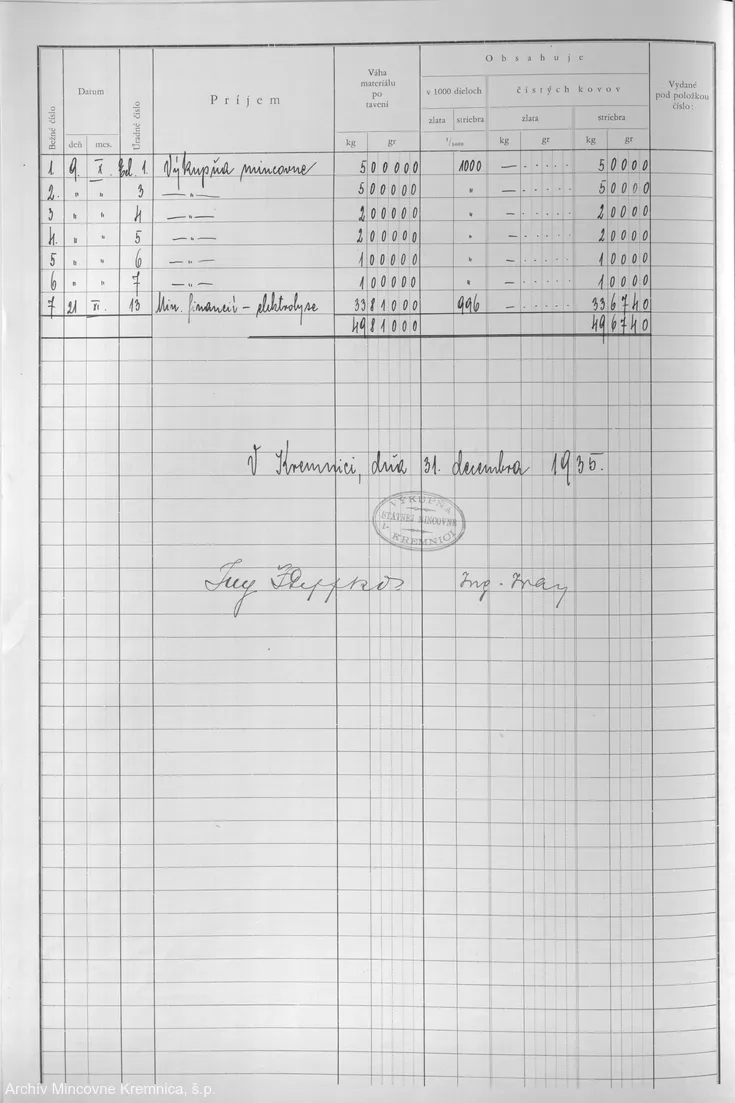 Bežné číslo
Datum
deň mes.
Uradné číslo
Príjem
Váha
materiálu
po
tavení
kg gr
Obsahuje
v 1000 dieloch
zlata striebra
1/1000
čistých kovov
zlata striebra
kg gr kg gr
Vydané
pod položkou
číslo:
1 9. X. Ed. 1. Výkupňa mincovne 500000 1000 — · · · · · 50000
2. " " 3 —"— 500000 " — · · · · · 50000
3 " " 4 —"— 200000 " — · · · · · 20000
4. " " 5 —"— 200000 " — · · · · · 20000
5 " " 6 —"— 100000 " — · · · · · 10000
6 " " 7 —"— 100000 " — · · · · · 10000
7 21 XI. 13 Min. financií – elektrolyse 3381000 996 — · · · · · 336740
4981000 496740
V Kremnici, dňa 31. decembra 1935.
VÝKUPŇA
ŠTÁTNEJ MINCOVNE
V KREMNICI
Ing
Ing.
Archív Mincovne Kremnica, š.p.